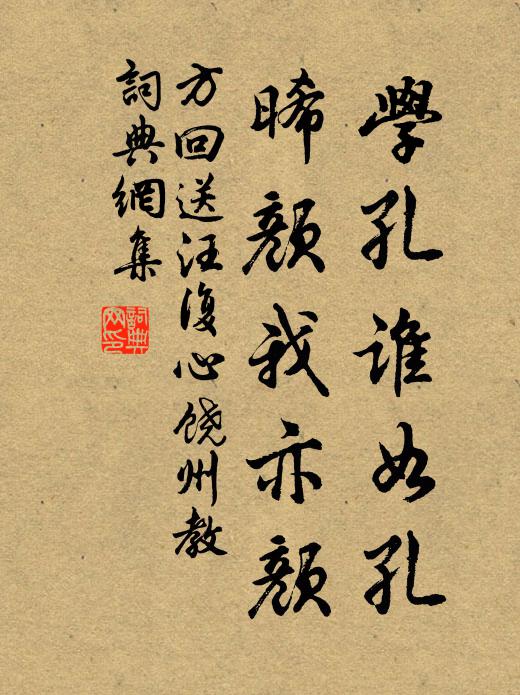 學孔誰如孔
晞顏我亦顏
方回送汪復心饶州教
詞典網集
詞典网印